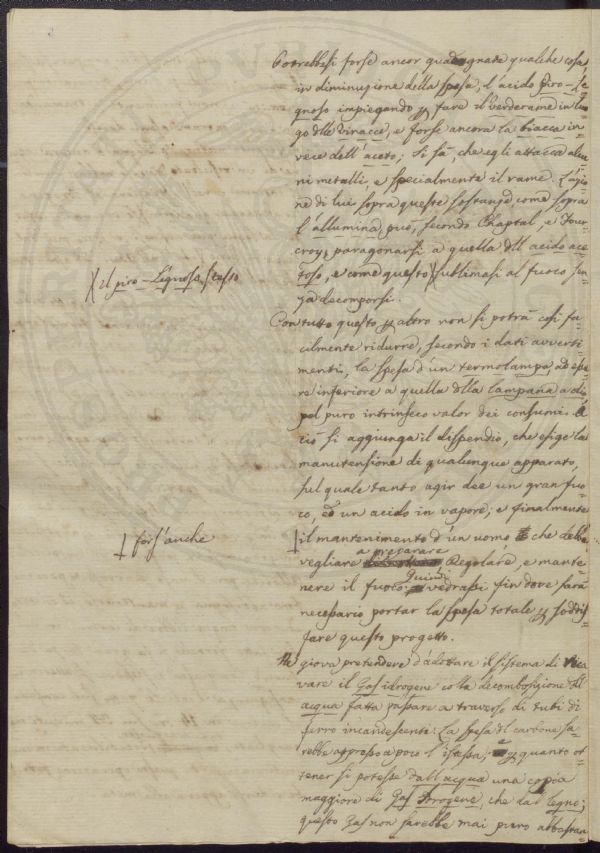 Potrebbesi forse ancor guadagnare qualche cosa
in diminuzione della spesa, l'acido Piro-Le
gnoso impiegando p fare il verderame in luo
go dlle Vinacce, e forse ancora la biacca in
vece dell'aceto; Si sà, che egli attacca alcu
ni metalli, e specialmente il rame. L'azio
ne di lui sopra queste sostanze come sopra
l'allumina può, secondo Chaptal, e Four
croy, paragonarsi a quella dll'acido ace
toso, e come questo X sublimasi al fuoco sen
za decomporsi.
X il piro-Legnoso stesso
Con tutto questo p altro non si potrà così fa
cilmente ridurre, secondo i dati avverti
menti, la spesa d'un termolampa, ad esse
re inferiore a quella dlla lampana a di
pel puro intrinseco valor dei consumi. A
ciò si aggiunga il dispendio, che esige la
manutensione di qualunque apparato,
sul quale tanto agir dee un gran fuo
co, ed un acido in vapore; e finalmente
† fors'anche
† il mantenimento d'un uomo che debba
vegliare a preparare Regolare, e mante
nere il fuoco. Quindi vedrassi fin dove sarà
necessario portar la spesa totale p soddis
fare questo progetto.
Ne giova pretendere d'adottare il sistema di rica
vare il Gas idrogene colla decomposizione dll'
acqua fatta passare a traverso di tubi di
ferro incandescenti: La spesa dl carbone sa
rebbe appresso a poco l'istessa; e p quanto ot
tener si potesse dall'acqua una copia
maggiore di Gas Idrogene, che dal Legno;
questo Gas non sarebbe mai puro abbastan